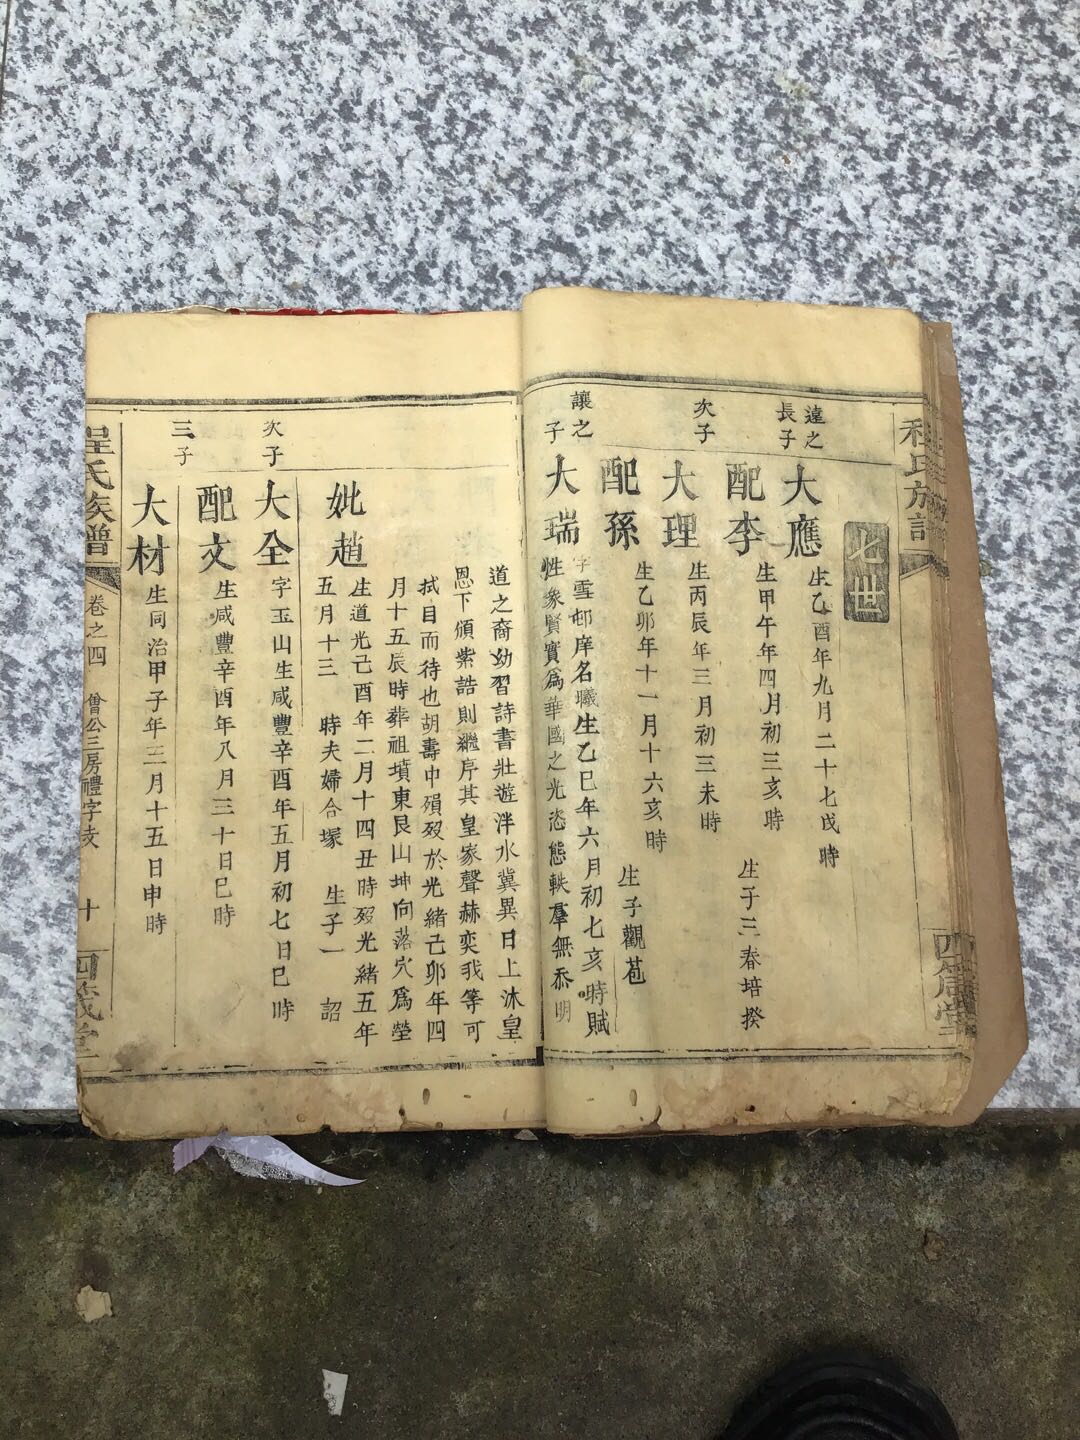 程氏族譜
四箴堂
七世
遠之
長子
大應
生乙酉年九月二十七戌時
配李
生甲午年四月初三亥時
生子三春培揆
次子
大理
生丙辰年三月初三未時
配孫
生乙卯年十一月十六亥時
生子觀苞
讓之
子
大瑞
字雪邨庠名曦生乙巳年六月初七亥時賦
性象賢實爲華國之光恣態軼羣無忝明
道之裔幼習詩書壯遊泮水冀異日上沐皇
恩下頒紫誥則繼序其皇家聲赫奕我等可
拭目而待也胡壽中殞歿於光緒己卯年四
月十五辰時葬祖墳東艮山坤向落穴爲塋
妣趙
生道光己酉年二月十四丑時歿光緒五年
五月十三 時夫婦合塚 生子一 詔
次子
大全
字玉山生咸豐辛酉年五月初七日巳時
配文
生咸豐辛酉年八月三十日巳時
三子
大材
生同治甲子年三月十五日申時
程氏族譜
卷之四
曾公三房禮字支
十
四箴堂